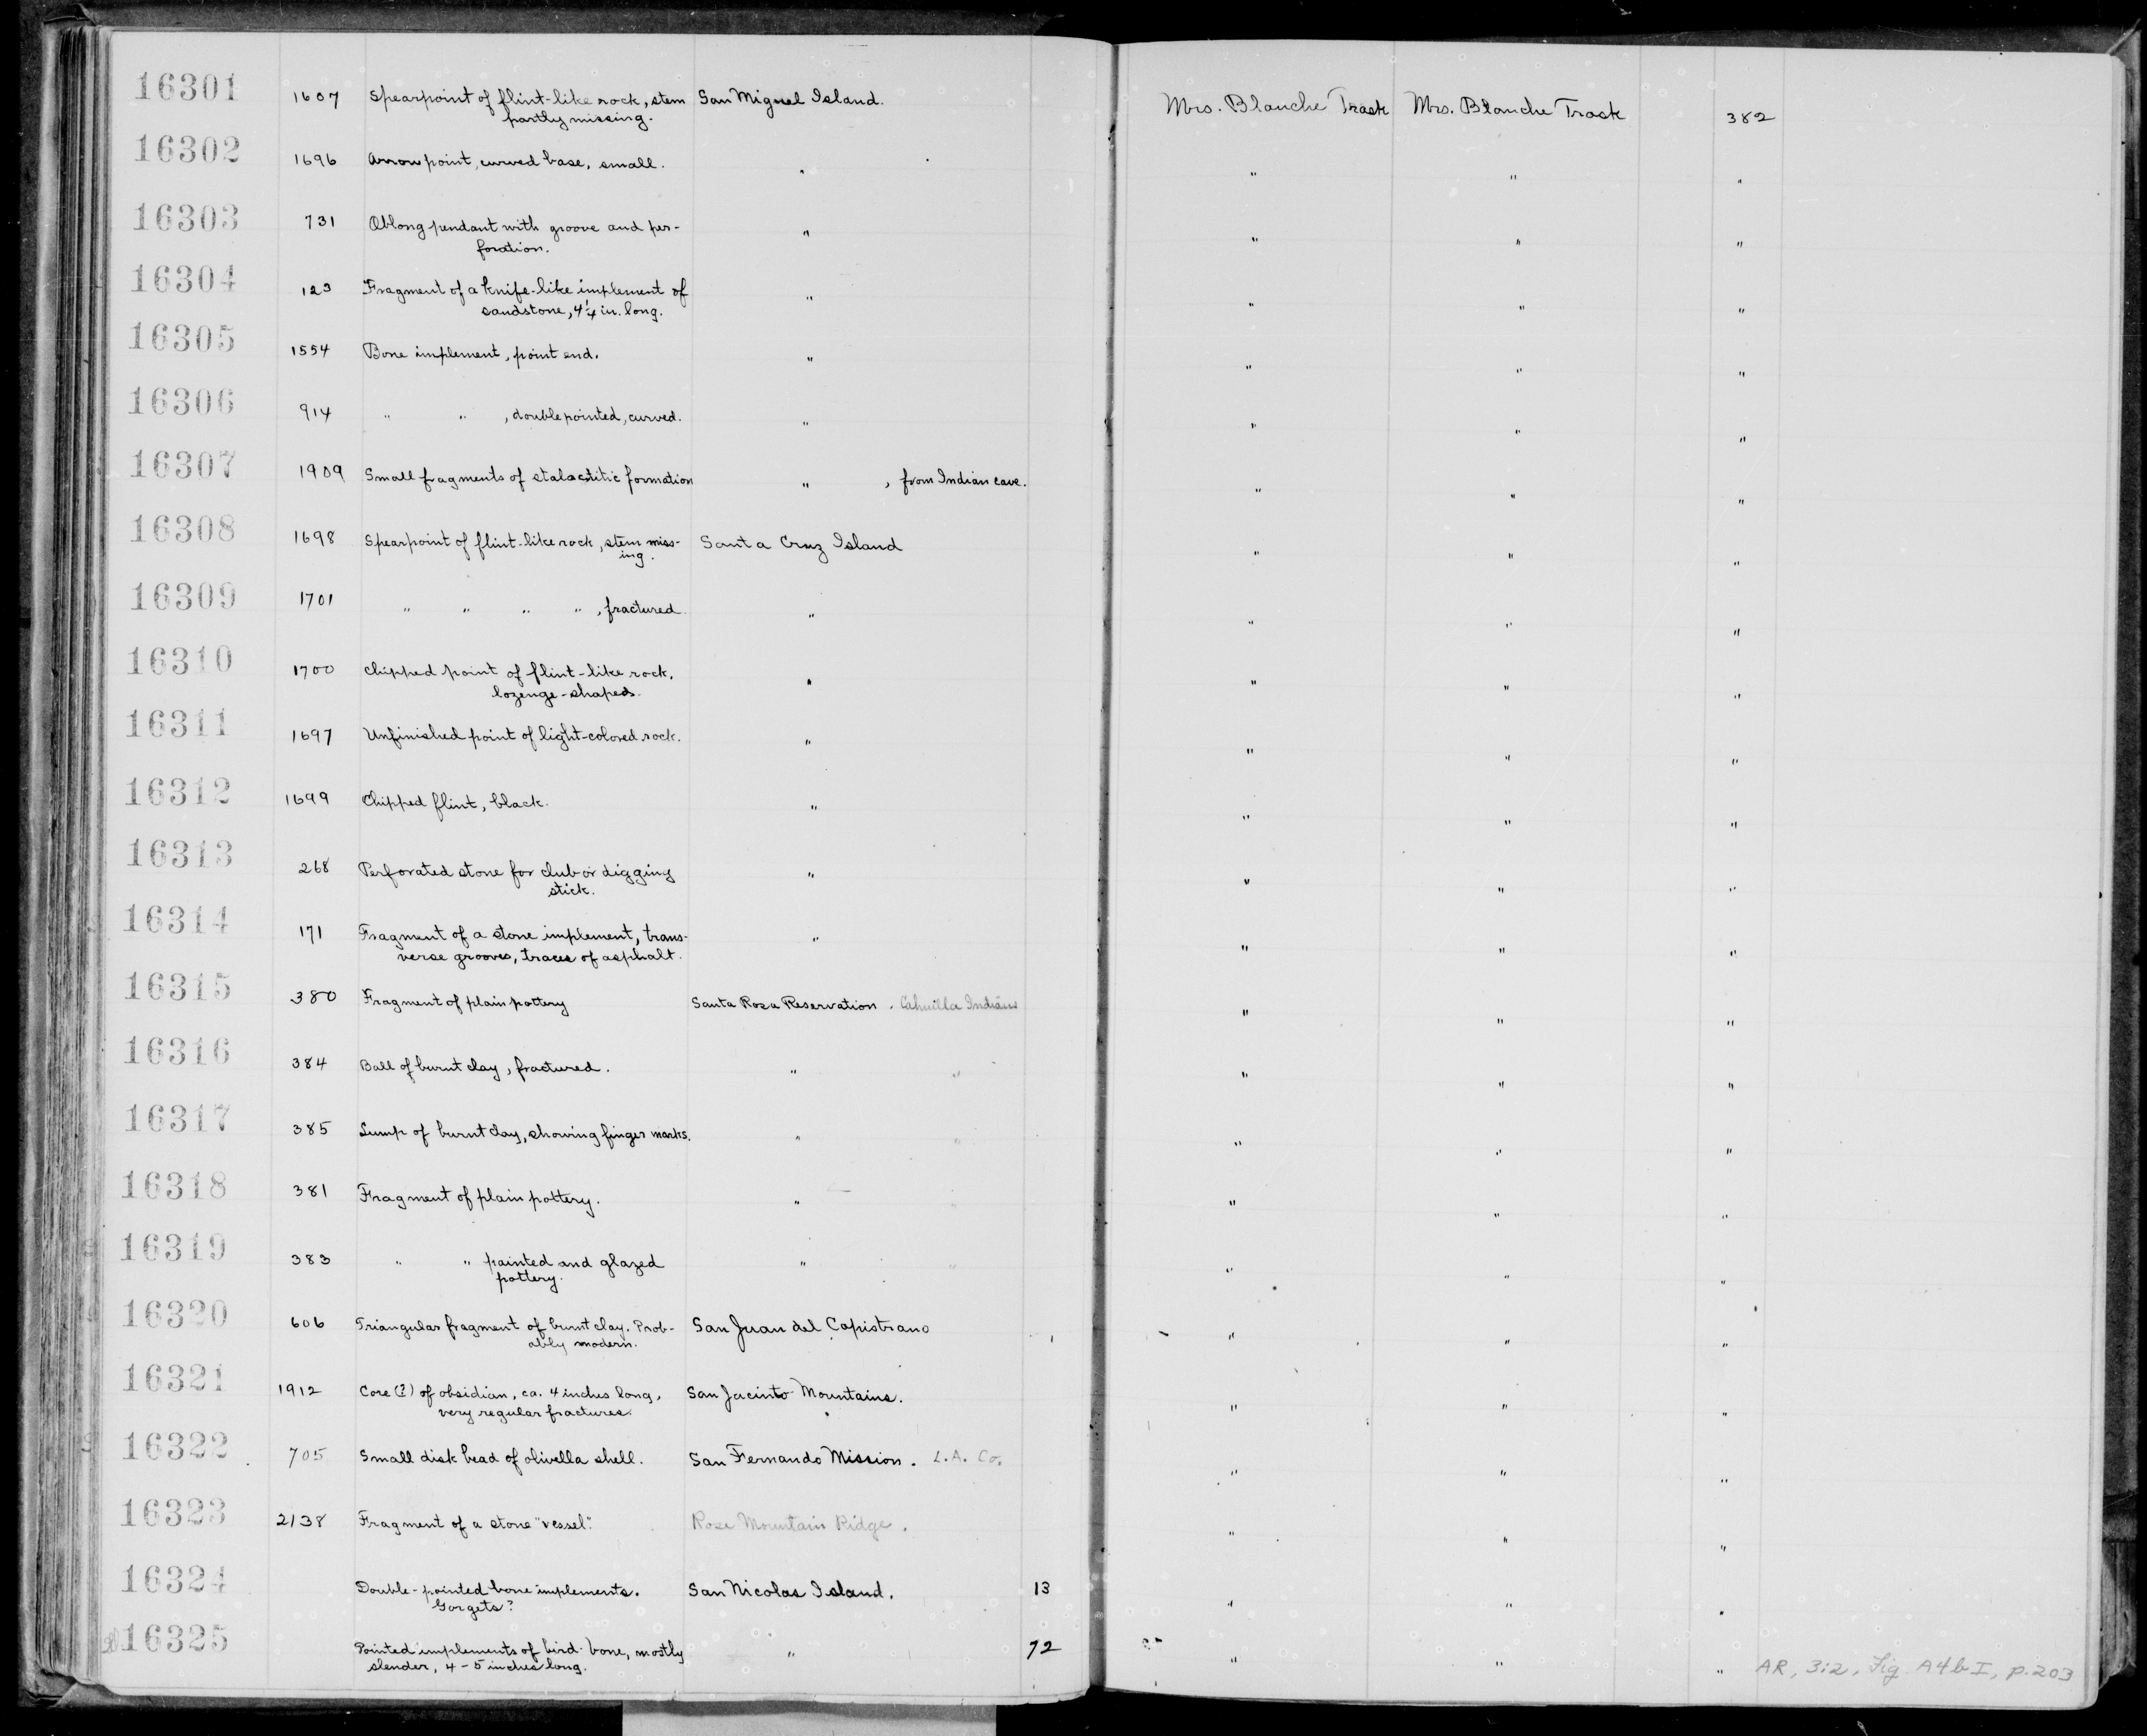 16301 1607 Spearpoint of flint-like rock, stem San Miguel Island. Mrs. Blanche Trask Mrs. Blanche Trask 382
partly missing.
16302 1696 Arrowpoint, curved base, small. " " " "
16303 731 Oblong pendant with groove and per- " " " "
foration.
16304 123 Fragment of a knife-like implement of " " " "
sandstone, 4 1/4 in. long.
16305 1554 Bone implement, point end. " " " "
16306 914 " " , double pointed, curved. " " " "
16307 1909 Small fragments of stalactitic formation " , from Indian cave. " " "
16308 1698 Spearpoint of flint-like rock, stem miss- Santa Cruz Island " " "
ing.
16309 1701 " " " " , fractured " " " "
16310 1700 Chipped point of flint-like rock, " " " "
lozenge-shaped.
16311 1697 Unfinished point of light-colored rock. " " " "
16312 1699 Chipped flint, black. " " " "
16313 268 Perforated stone for club or digging " " " "
stick.
16314 171 Fragment of a stone implement, trans- " " " "
verse grooves, traces of asphalt.
16315 380 Fragment of plain pottery Santa Rosa Reservation . Cahuilla Indians " " "
16316 384 Ball of burnt clay, fractured. " " " " "
16317 385 Lump of burnt clay, showing finger marks. " " " " "
16318 381 Fragment of plain pottery. " " " " "
16319 383 " " painted and glazed " " " " "
pottery.
16320 606 Triangular fragment of burnt clay. Prob- San Juan del Capistrano " " "
ably modern.
16321 1912 Core (?) of obsidian, ca. 4 inches long, San Jacinto Mountains. " " "
very regular fractures.
16322 705 Small disk bead of olivella shell. San Fernando Mission. L.A. Co. " " "
16323 2138 Fragment of a stone "vessel". Rose Mountain Ridge. " " "
16324 Double-pointed bone implements. San Nicolas Island. 13 " " "
Gorgets?
16325 Pointed implements of bird-bone, mostly " 72 " " " AR, 3:2, Fig. A4b I, p.203
slender, 4-5 inches long.